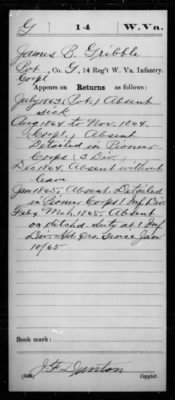 G 14 W. Va.
James B. Gribble
Pvt., Co. G, 14 Reg't W. Va. Infantry.
Corpl
Appears on Returns as follows:
July 1863 (Pvt.) Absent
sick
Aug 1864 to Nov. 1864.
(Corpl.) Absent
Detailed in Pioneer
Corps, 3 Div.
Dec 1864. Absent without
leave
Jan 1865. Absent. Detailed
in Pioneer Corps 1 Inf Div
Feby, Mch, 1865. Absent
on detchd. duty at 1 Inf
Div. Hd. qrs. Since Jan
10/65
Book mark:
J. F. Dunton
Copyist.